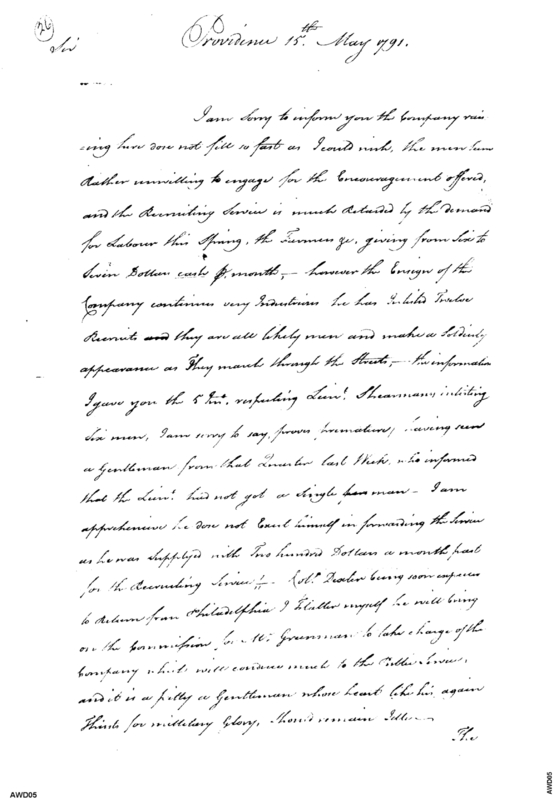 26
Providence 15th. May 1791.
Sir
I am Sorry to inform you the Company rais
ing here dose not fill so fast as I could wish, the men seem
Rather unwilling to engage for the Encouragement offered,
and the Recruiting Service is much Retarded by the demand
for Labour this Spring, the Farmers giving from Six to
Seven Dollars cash month, – however the Ensign of the
Company continues very Industrious he has Inlisted Twelve
Recruits and they are all likely men and make a Soldierly
appearance as They march through the Streets, – the information
I gave you the 5 Inst. respecting Lieut. Shearmans inlisting
Six men, I am sorry to say, proves premature, having seen
a Gentleman from that Quarter last Week, who informed
that the Lieut. had not got a Single man – I am
apprehensive he dose not Exert himself in forwarding the Service
as he was Supplyed with Two hundred Dollars a month past
for the Recruiting Service – Colo. Dexter being soon expected
to Return from Philadelphia I Flatter myself he will bring
on the Commission for Mr. Greenman to take charge of the
Company which will conduce much to the Public Service,
and it is a pitty a Gentleman whose heart like his again
Thirsts for millitary Glory, Should remain Idle –
The
AWD05
AWD05